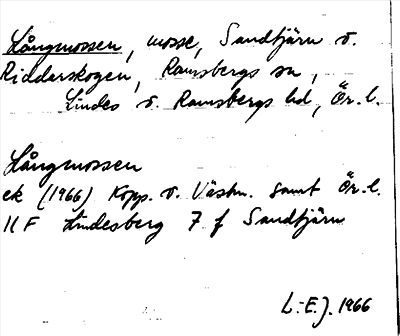 Långmossen, mosse, Sandtjärn o.
Riddarskogen, Ramsbergs sn,
Lindes o. Ramsbergs hd, Ör. l.
Långmossen
ek (1966) Kopp. o. Västm. samt Ör. l.
11 F Lindesberg 7 f Sandtjärn
L.-E.J. 1966